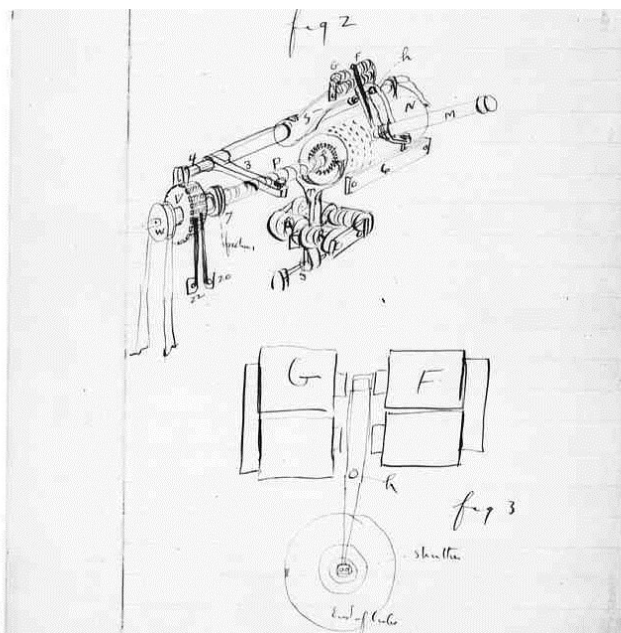 fig 2
G F h
N
M
S
4 3 P
6
V
7
W
22 20
G F
h
fig 3
shutter
End of tube